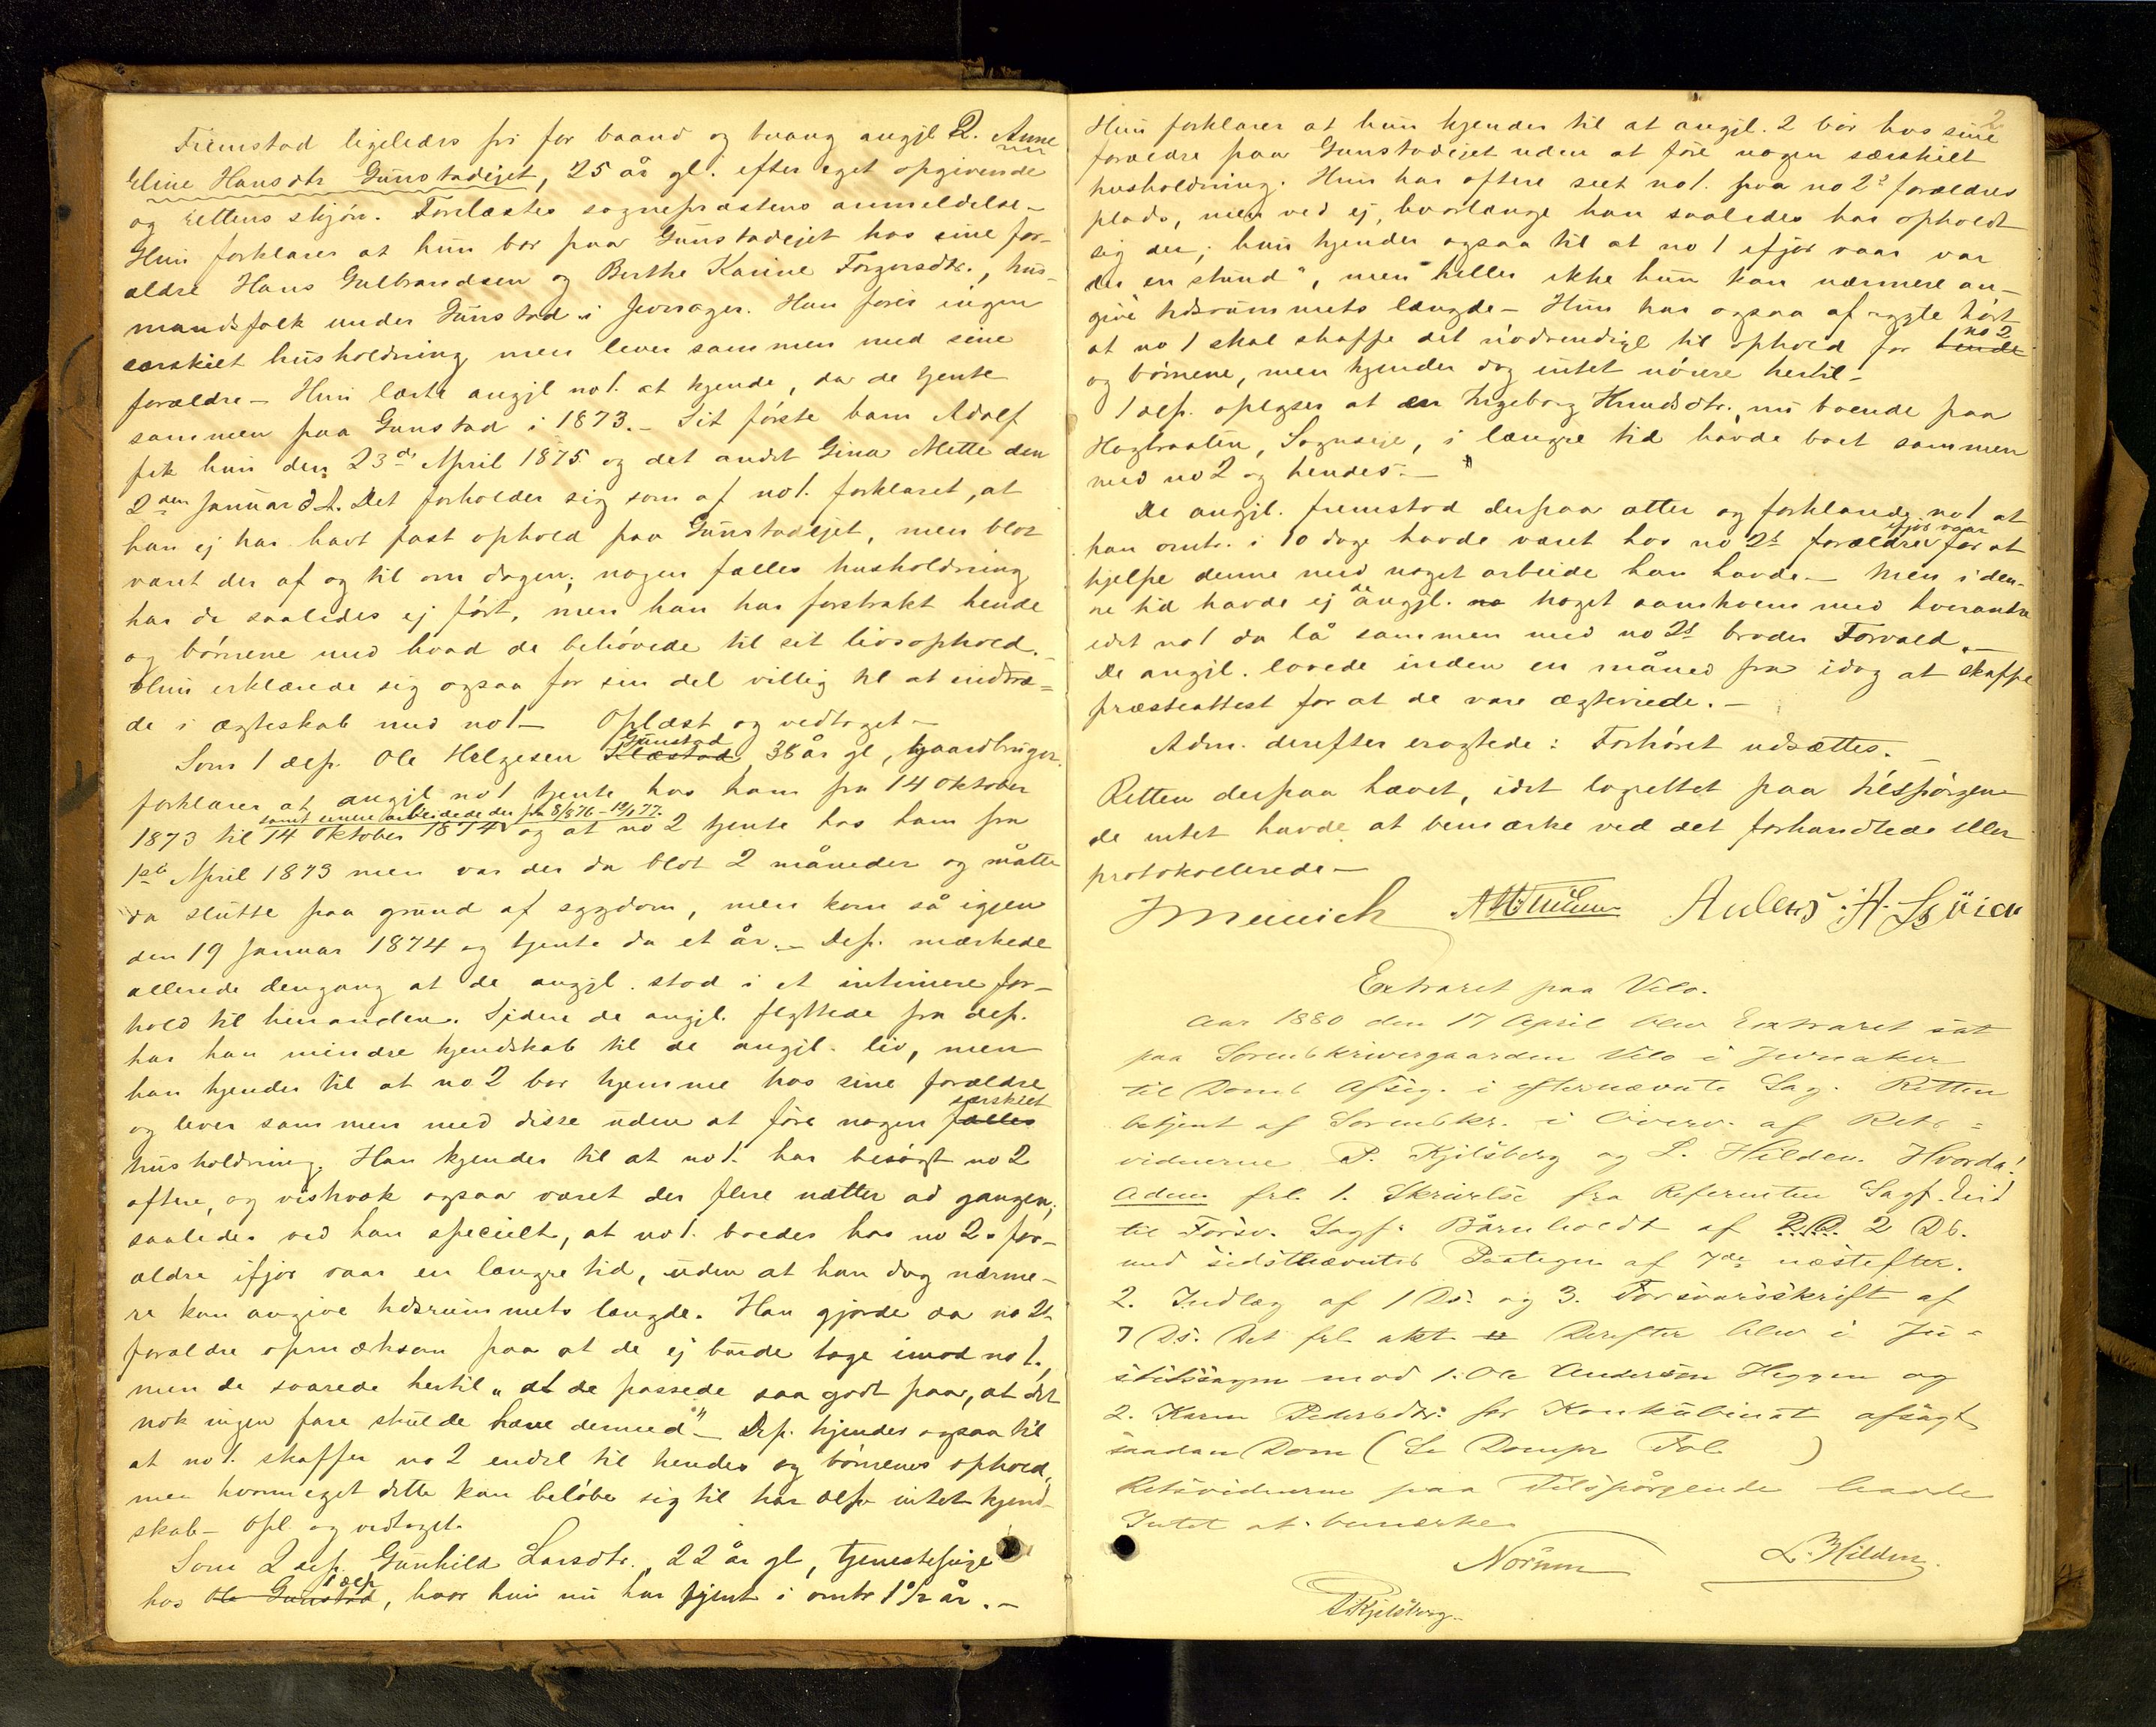 Fremstod ligeledes fri for baand og tvang angjl 2. Anne
Eline Hansdtr Gunstadejet, 25 år gl. efter eget opgivende
og rettens skjøn. Forelæstes sogneprestens anmeldelse –
Hun forklarer at hun bor paa Gunstadejet hos sine for-
ældre Hans Gulbrandsen og Berthe Karine Torgersdtr., hus-
mandsfolk under Gunstad i Jevnager. Hun fører ingen
særskilt husholdning men lever sammen med sine
forældre – Hun lærte angjl no 1. at kjende, da de tjente
sammen paa Gunstad i 1873. – Sit første barn Adolf
fik hun den 23de April 1875 og det andet Gina Mette den
2den Januar d.A. Det forholder sig som af no 1. forklaret, at
han ej har havt fast ophold paa Gunstadejet, men blot
været der af og til om dagen; nogen fælles husholdning
har de saaledes ej ført, men han har forstrakt hende
og børnene med hvad de behøvede til sit livsophold. –
Hun erklærede sig ogsaa for sin del villig til at indtræ=
de i ægteskab med no 1 – Oplæst og vedtaget –
Gunstad
Som 1 dep. Ole Helgesen Klæstad, 38 år gl, gaardbruger.
forklarer at angjl no 1 tjente hos ham fra 14 Oktober
samt under arbeidede der fra 8/8 76 – 19/1 77.
1873 til 14 Oktober 1874 og at no 2 tjente hos ham fra
1ste April 1873 men var der da blot 2 måneder og måtte
da slutte paa grund af sygdom, men kom så igjen
den 19 Januar 1874 og tjente da et år. – Dep. mærkede
allerede dengang at de angjl. stod i et intimere for-
hold til hinanden. Siden de angjl. flyttede fra dep.
har han mindre kjendskab til de angjl. liv, men
han kjender til at no 2 bor hjemme hos sine forældre
særskilt
og lever sammen med disse uden at føre nogen fælles
husholdning. Han kjender til at no 1. har besøgt no 2
oftere, og vistnok ogsaa været der flere nætter ad gangen;
saaledes ved han specielt, at no 1. boede hos no 2s for-
ældre ifjor vaar en længre tid, uden at han dog nærme-
re kan angive tidsrummets længde. Han gjorde da no 2s
forældre opmærksom paa at de ej burde tage imod no 1.,
men de svarede hertil „at de passede saa godt paa, at det
nok ingen fare skulde have dermed" – Dep. kjender ogsaa til
at no 1. skaffer no 2 endel til hendes og børnenes ophold,
men hvormeget dette kan beløbe sig til har dep intet kjend-
skab – Opl. og vedtaget.
Som 2 dep. Gunhild Larsdtr., 22 år gl, tjenestepige
1 dep
hos Ole Gunstad, hvor hun nu har tjent i omtr 1½ år. –
2
Hun forklarer at hun kjender til at angjl. 2 bor hos sine
forældre paa Gunstadejet uden at føre nogen særskilt
husholdning. Hun har oftere seet no 1. paa no 2s forældres
plads, men ved ej, hvorlænge han saaledes har opholdt
sig der; hun kjender ogsaa til at no 1 ifjor vaar var
der „en stund", men heller ikke hun kan nærmere an-
give tidsrummets længde – Hun har ogsaa af rygte hørt
no 2
at no 1 skal skaffe det nødvendige til ophold for hende
og børnene, men kjender dog intet nøiere hertil –
1 dep. oplyser at en Ingeborg Knudsdtr., nu boende paa
Hagbraaten, Sogneeje, i længre tid havde boet sammen
med no 2 og hendes. –
De angjl. fremstod derpaa atter og forklarede no 1 at
ifjor vaar
han omtr. i 10 dage havde været hos no 2s forældre for at
hjelpe denne med noget arbeide han havde. – Men i den-
de
ne tid havde ej angjl. no noget samkvem med hverandre
idet no 1 da lå sammen med no 2s broder Torvald. –
De angjl. lovede inden en måned fra idag at skaffe
præsteattest for at de vare ægteviede. –
Adm. derefter eragtede: Forhøret udsættes. –
Retten derpaa hævet, idet lagrettet paa tilspørgen-
de intet havde at bemærke ved det forhandlede eller
protokollerede –
Anders H.
Extraret paa Velo.
Aar 1880 den 17 April blev Extraret sat
paa Sorenskrivergaarden Velo i Jevnaker
til Doms Afsig. i efternævnte Sag. Retten
betjent af Sorenskr. i Overv. af Rets=
vidnerne P. Kjilsberg og L. Hilden. Hvorda!
Adm. frl. 1. Skrivelse fra Referenten Sagf. Eid
til Forsv. Sagf. Barnholdt af 2 D. 2 Ds.
med sidstnævntes Paategn af 7de næstefter.
2. Indlæg af 1 Ds. og 3. Forsvarsskrift af
7 Ds. Det frl. akt. Derefter blev i Ju=
stitssagen mod 1. Ole Andersen Heggen og
2. Karen Pedersdtr. for Konkubinat afsagt
saadan Dom (Se Dompr Fol. )
Retsvidnerne paa Tilspørgende havde
Intet at bemærke
Norum L. Hilden.
P. Kjilsberg